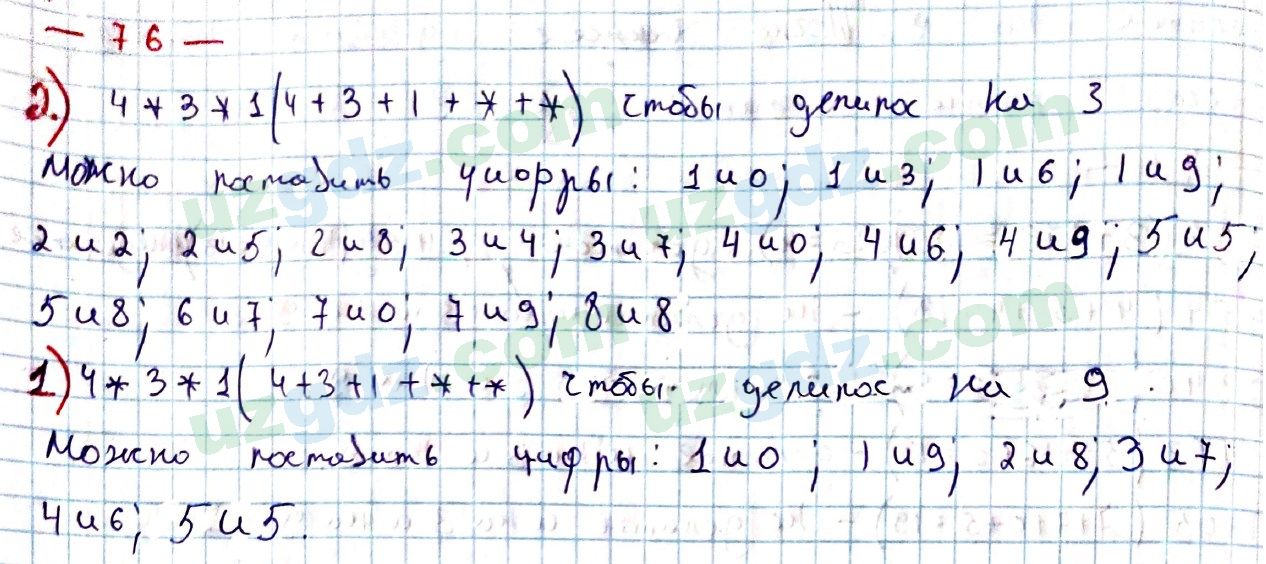 — 76 —
2.) 4 * 3 * 1 (4 + 3 + 1 + * + *) чтобы делилос на 3
Можно поставить цифры: 1 и 0; 1 и 3; 1 и 6; 1 и 9;
2 и 2; 2 и 5; 2 и 8; 3 и 4; 3 и 7; 4 и 0; 4 и 6; 4 и 9; 5 и 5;
5 и 8; 6 и 7; 7 и 0; 7 и 9; 8 и 8
1) 4 * 3 * 1 ( 4+3+1 + * + *) чтобы делилос на 9.
Можно поставить цифры: 1 и 0; 1 и 9; 2 и 8; 3 и 7;
4 и 6; 5 и 5.
uzgdz.com
uzgdz.com
uzgdz.com
uzgdz.com